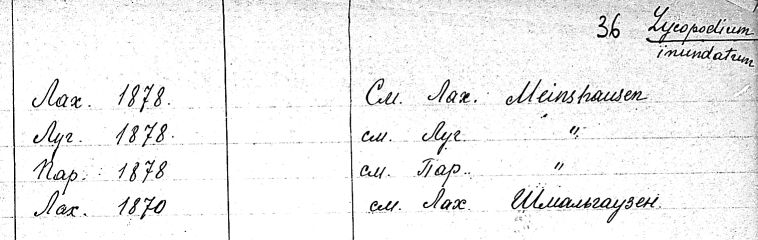 36 Lycopodium
inundatum
Лах. 1878. См. Лах. Meinshausen
Луг. 1878. см. Луг. "
Пар. 1878 см. Пар. "
Лах. 1870 см. Лах. Шмальгаузен.